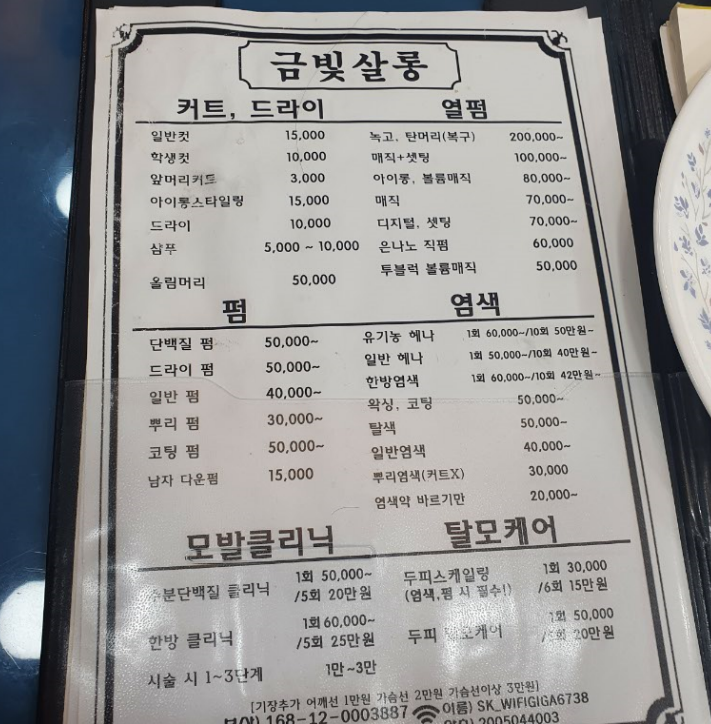 금빛살롱
커트, 드라이
일반컷 15,000
학생컷 10,000
앞머리커트 3,000
아이롱스타일링 15,000
드라이 10,000
샴푸 5,000 ~ 10,000
올림머리 50,000
열펌
녹고, 탄머리(복구) 200,000~
매직+셋팅 100,000~
아이롱, 볼륨매직 80,000~
매직 70,000~
디지털, 셋팅 70,000~
은나노 직펌 60,000
투블럭 볼륨매직 50,000
펌
단백질 펌 50,000~
드라이 펌 50,000~
일반 펌 40,000~
뿌리 펌 30,000~
코팅 펌 50,000~
남자 다운펌 15,000
염색
유기농 헤나 1회 60,000~/10회 50만원~
일반 헤나 1회 50,000~/10회 40만원~
한방염색 1회 60,000~/10회 42만원~
왁싱, 코팅 50,000~
탈색 50,000~
일반염색 40,000~
뿌리염색(커트X) 30,000
염색약 바르기만 20,000~
모발클리닉
수분단백질 클리닉 1회 50,000~
/5회 20만원
한방 클리닉 1회60,000~
/5회 25만원
시술 시 1~3단계 1만~3만
탈모케어
두피스케일링 1회 30,000
(염색,펌 시 필수!) /6회 15만원
두피 탈모케어 1회 50,000
/5회 20만원
[기장추가 어깨선 1만원 가슴선 2만원 가슴선이상 3만원]
168-12-0003887 이름) SK_WIFIGIGA6738
2005044003